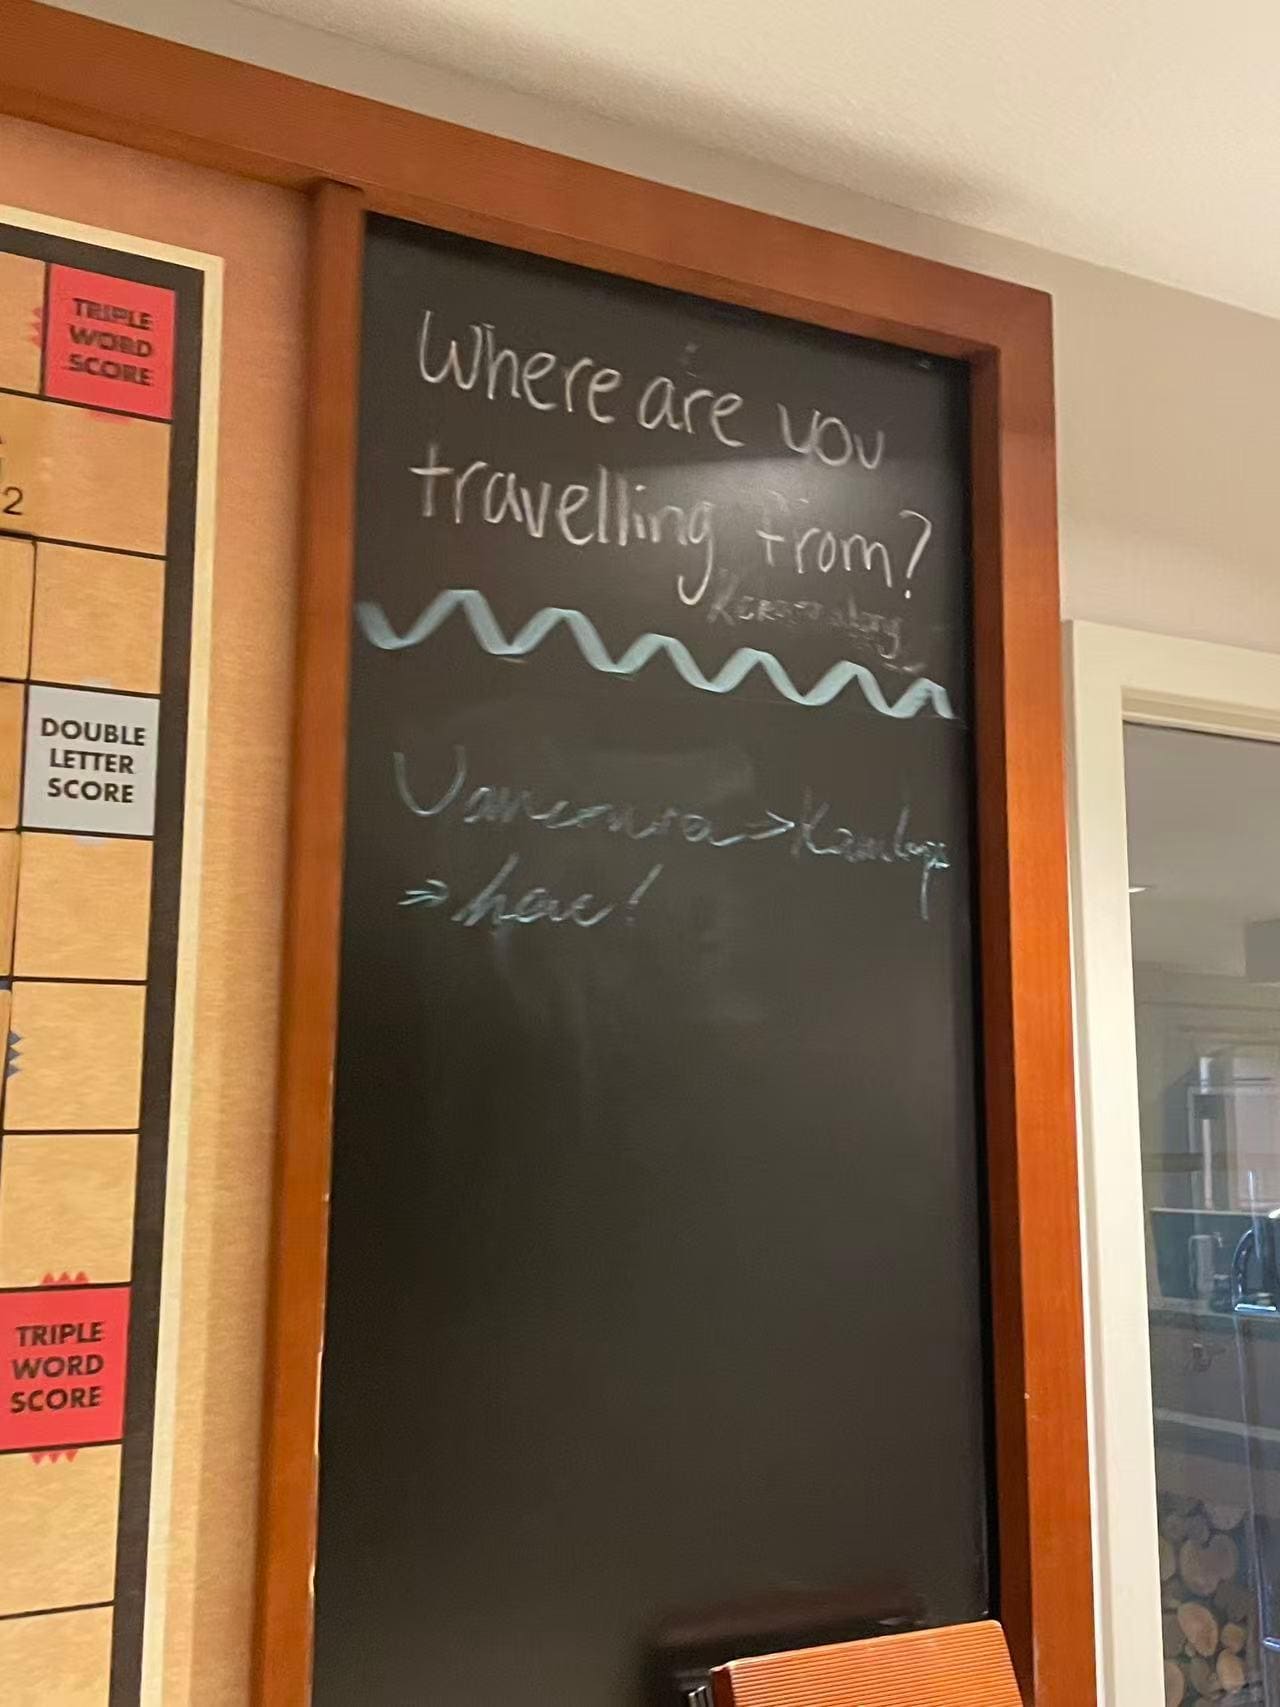 TRIPLE
WORD
SCORE
2
DOUBLE
LETTER
SCORE
TRIPLE
WORD
SCORE
Where are you
travelling from?
→ Kamloops
→ here!